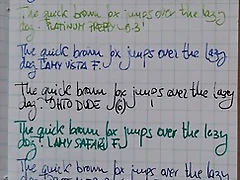 The quick brown fox jumps over the lazy
dog. PLATINUM PREPPY 0.3
The quick brown fox jumps over the lazy
dog. LAMY VISTA F.
The quick brown fox jumps over the lazy
dog. OHTO DUDE
The quick brown fox jumps over the lazy
dog. LAMY SAFARI F.
The quick brown fox jumps over the lazy